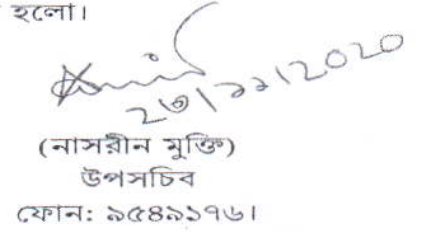 হলো।
২৬/১১/২০২০
(নাসরীন মুক্তি)
উপসচিব
ফোন: ৯৫৪৯১৭৬।